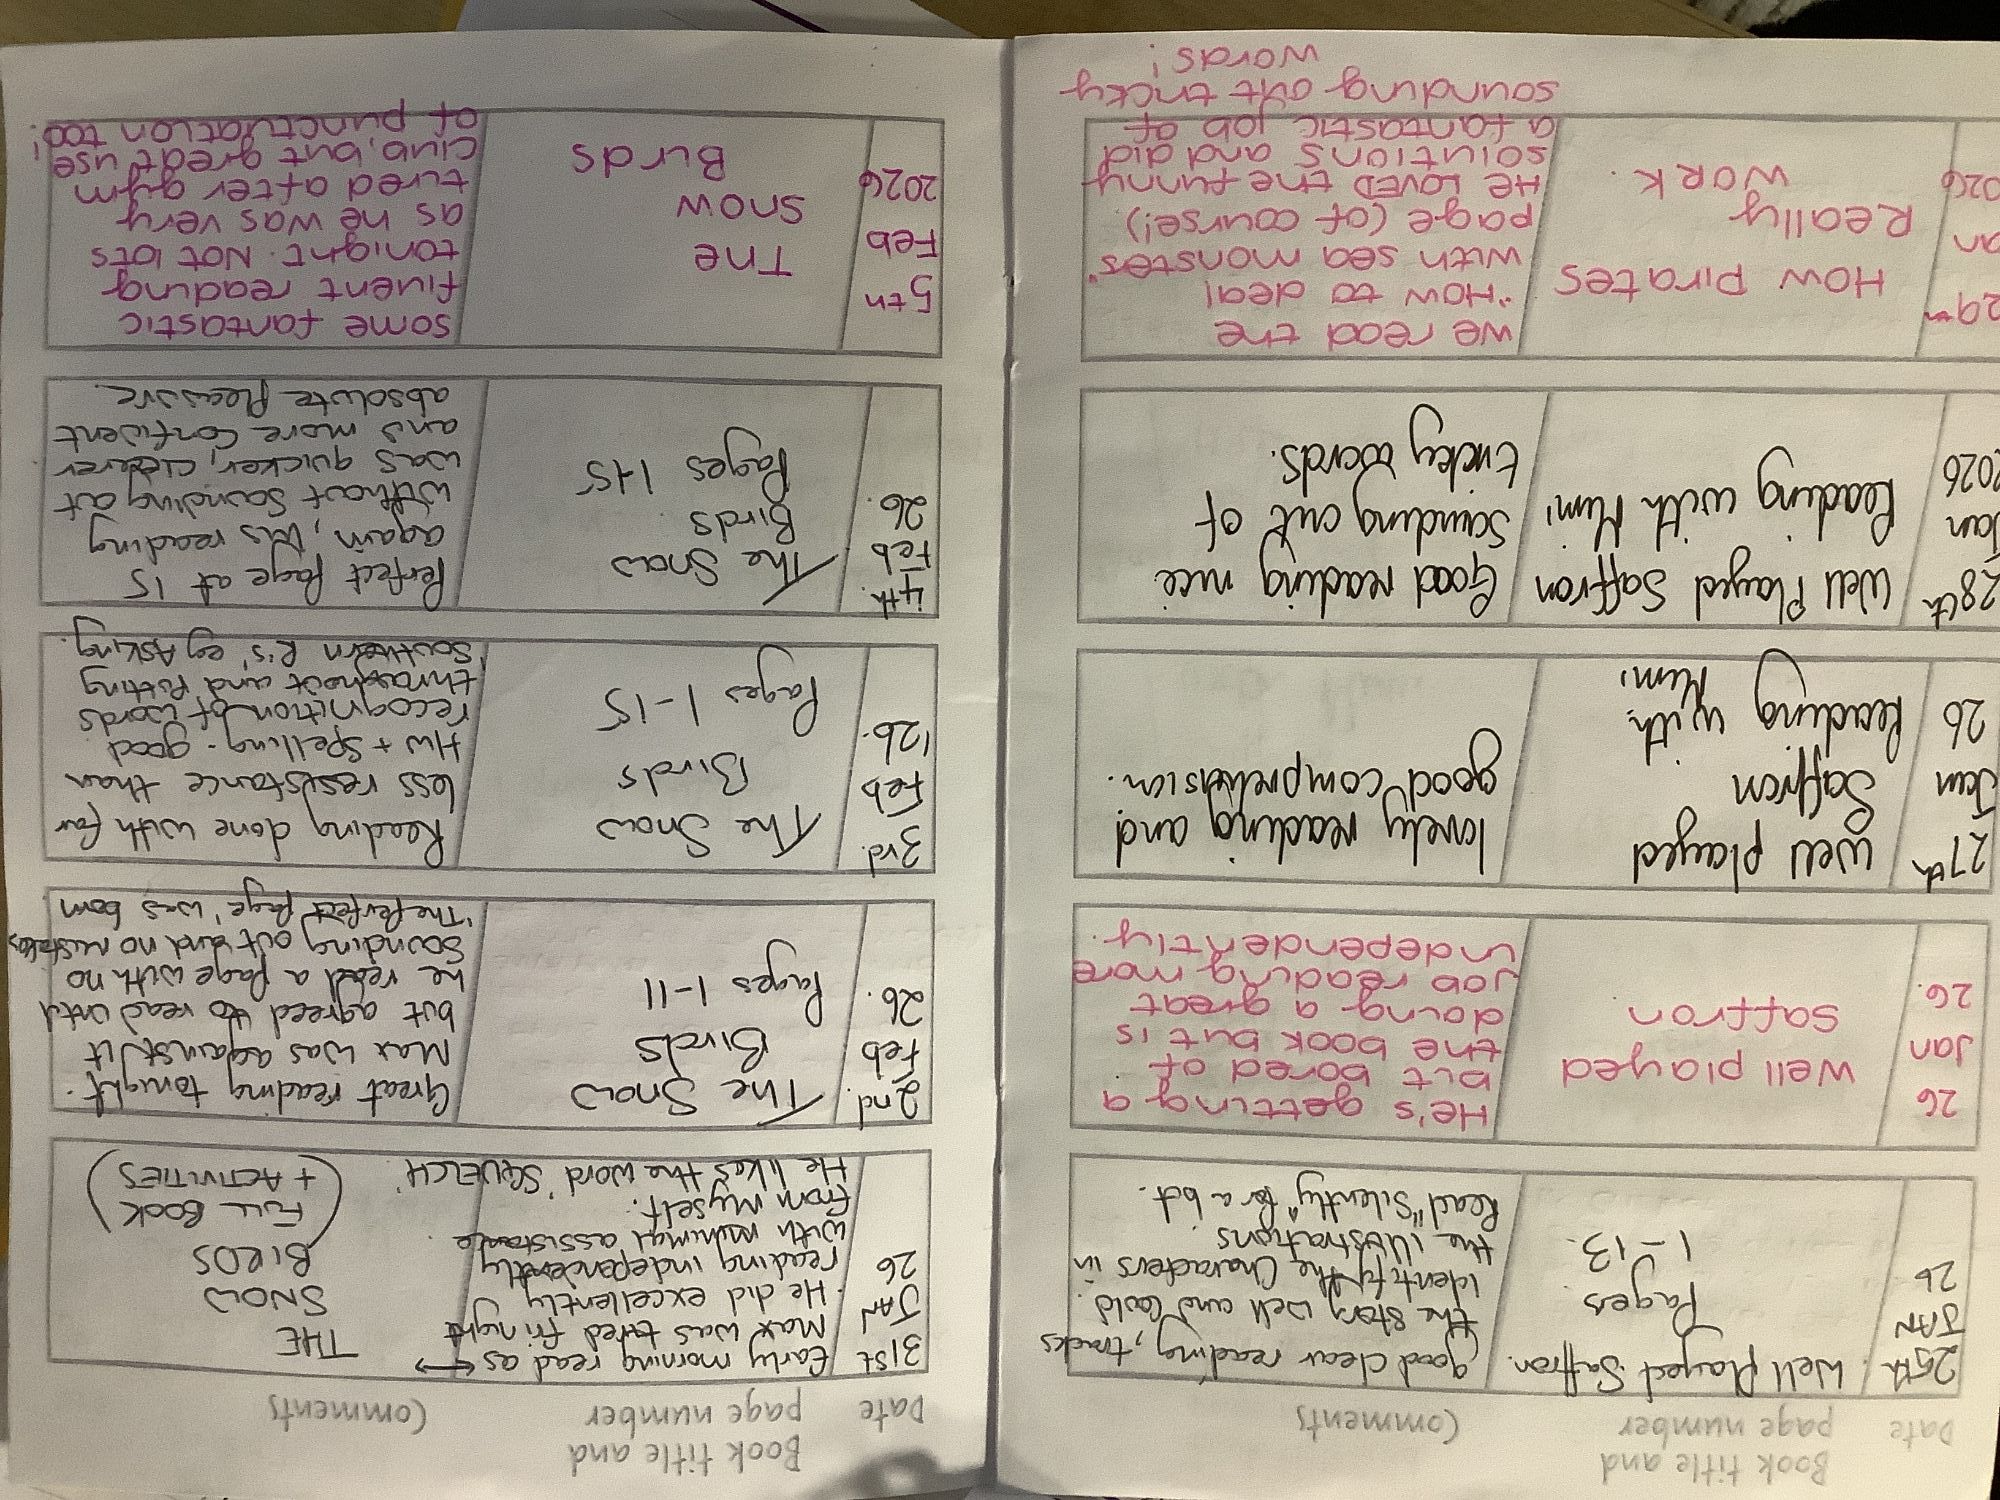 Date
Book title and
page number
Comments
25th
JAN
26
Well Played Saffron.
Pages
1-13.
good clear reading, tracks
the story well and could
identify the characters in
the illustrations
Read "Silently" for a bit.
26
Jan
26.
Well played
Saffron
He's getting a
bit bored of
the book but is
doing a great
job reading more
independently.
27th
Jan
26
Well played
Saffron
Reading with
Mum.
lovely reading and
good comprehension.
28th
Jan
2026
Well Played Saffron
Reading with Mum.
Good reading nice
sounding out of
tricky words.
29th
an
026
How Pirates
Really
Work.
We read the
"How to deal
with sea monsters"
page (of course!)
He LOVED the funny
solutions and did
a fantastic job of
sounding out tricky
words!
Date
Book title and
page number
Comments
31st
JAN
26
Early morning read as
Max was tired fri night
He did excellently
reading independently
with minimal assistance
from myself.
He likes the word 'SQUELCH'
THE
SNOW
BIRDS
(FULL BOOK
+ ACTIVITIES)
2nd.
Feb
26.
The Snow
Birds
Pages 1-11
Great reading tonight.
Max was against it
but agreed to read until
he read a page with no
sounding out and no mistakes
'The Perfect Page' was born
3rd.
Feb
'26.
The Snow
Birds
Pages 1-15
Reading done with far
less resistance than
HW + Spelling. good
recognition of words
throughout and putting
'Southern R's' eg ASKing.
4th.
Feb
26.
The Snow
Birds
Pages 1-15
Perfect Page at 15
again, his reading
without sounding out
was quicker, clearer
and more confident
absolute pleasure
5th
Feb
2026
The
Snow
Birds
Some fantastic
fluent reading
tonight. Not lots
as he was very
tired after gym
club, but great use
of punctuation too!